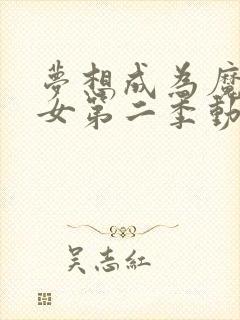 夢想成為魔
女第二季動
吳志紅